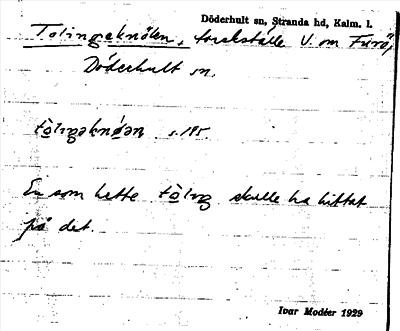 Döderhult sn, Stranda hd, Kalm. l.
Tolingeknölen, torskställe V. om Furö,
Döderhult sn.
tòlıŋəknö́ən s. 195.
En som hette tòlıŋ skulle ha hittat
på det.
Ivar Modéer 1929